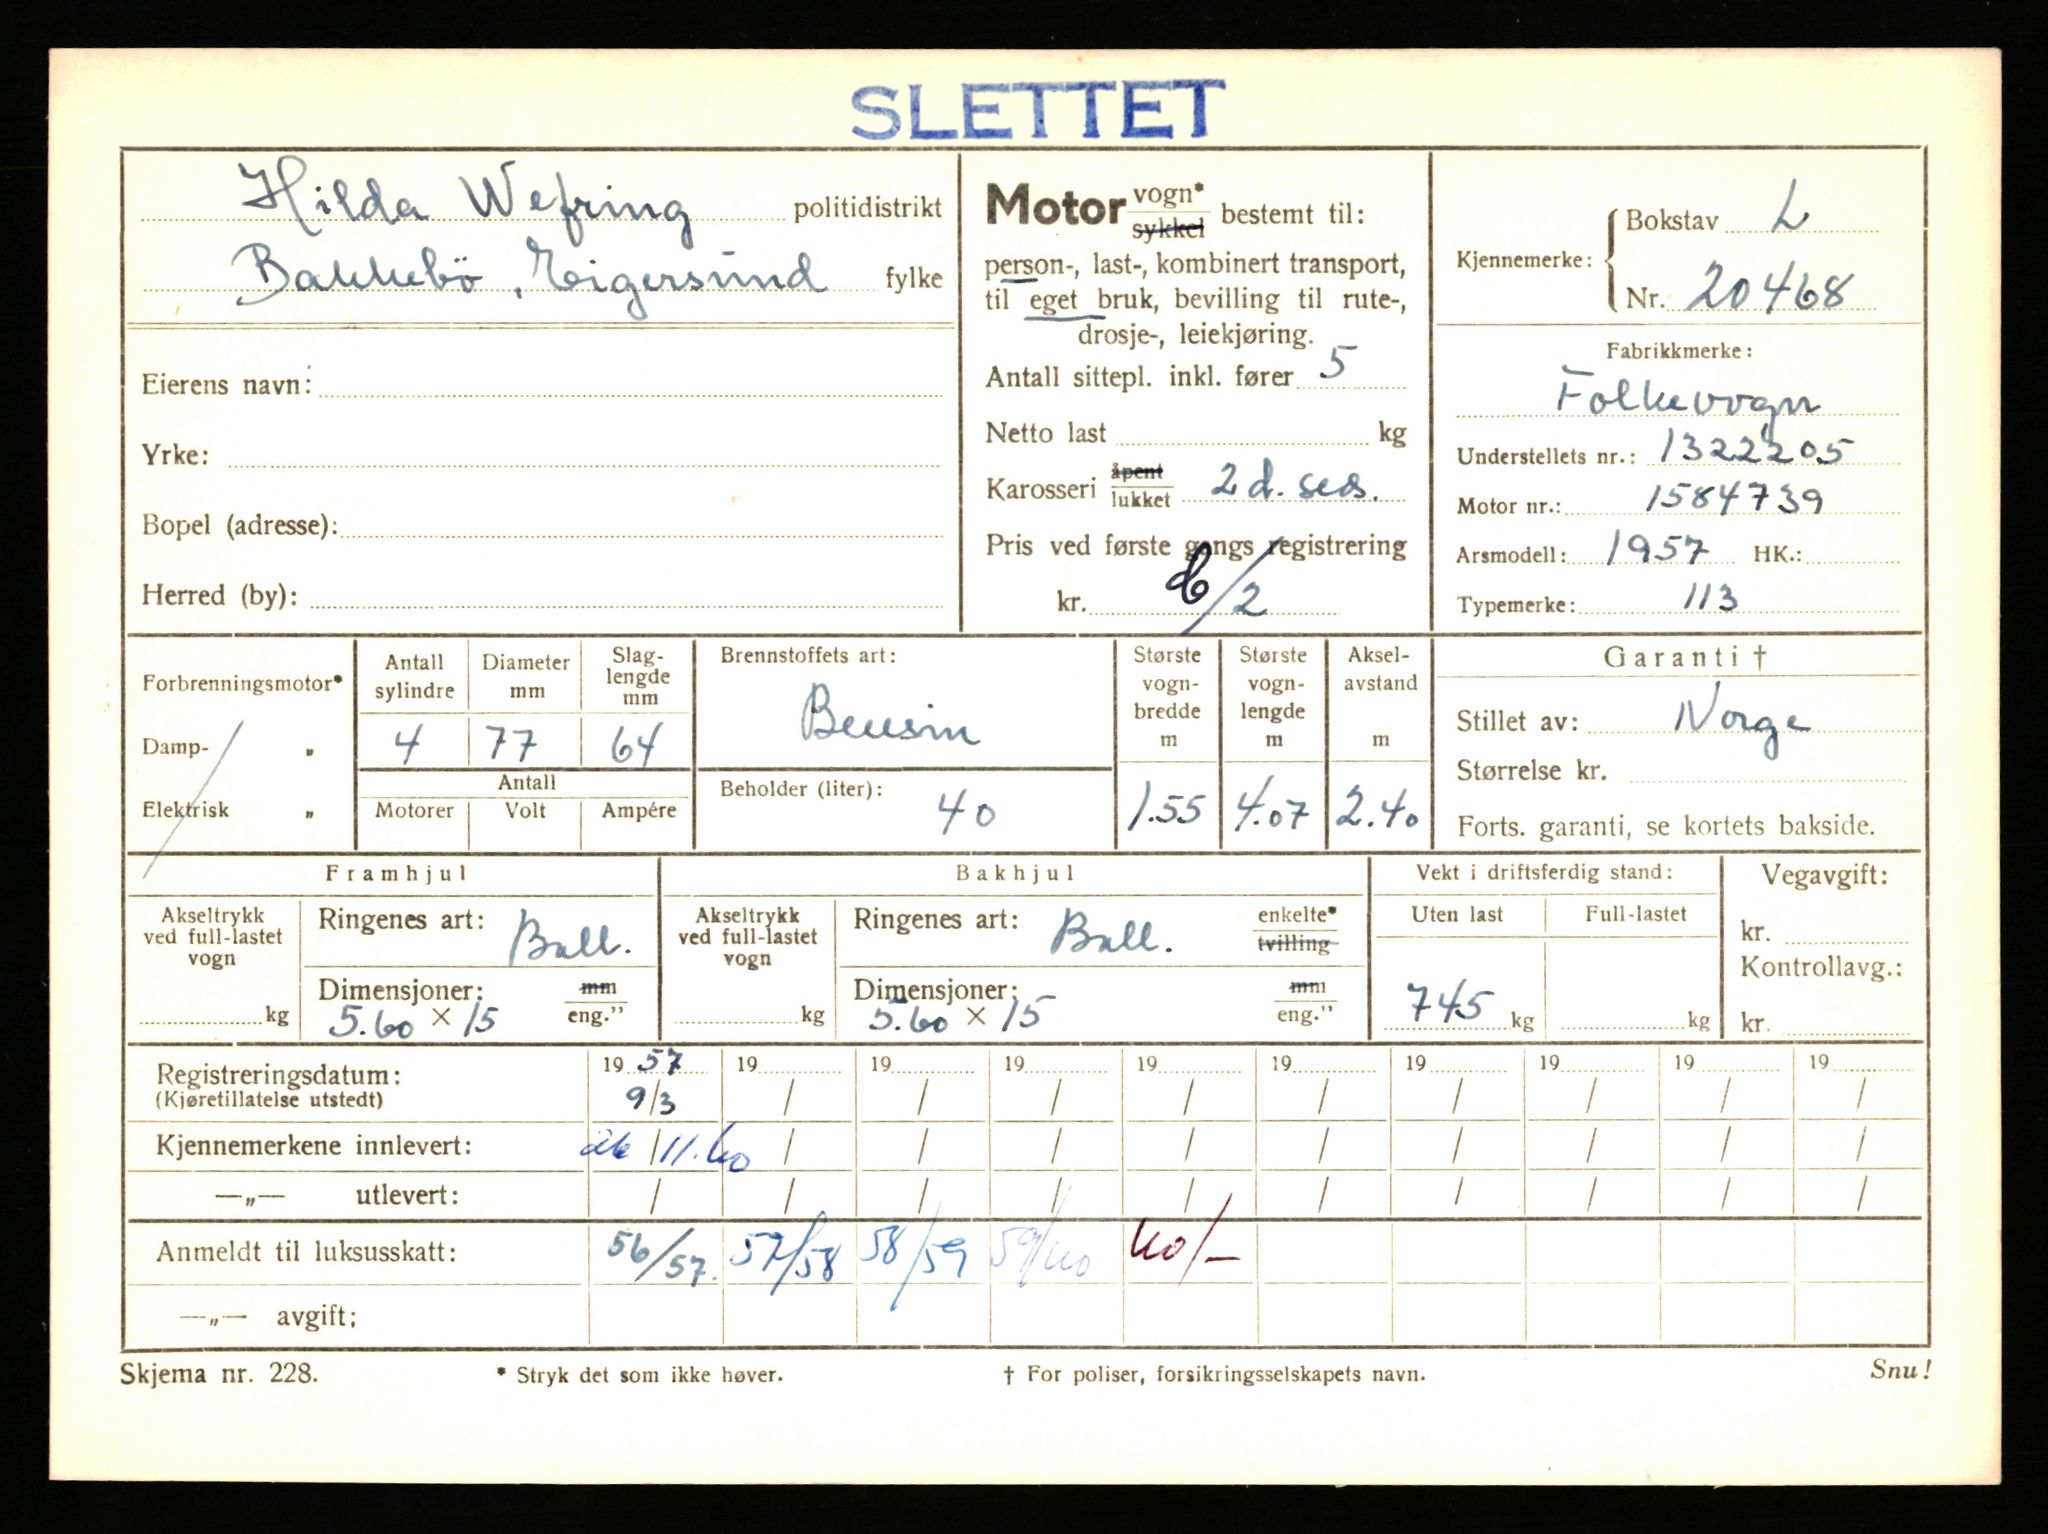 SLETTET
Hilda Wefring politidistrikt
Bakkebö, Eigersund fylke
Eierens navn:
Yrke:
Bopel (adresse):
Herred (by):
Motor vogn* sykkel bestemt til:
person-, last-, kombinert transport,
til eget bruk, bevilling til rute-,
drosje-, leiekjøring.
Antall sittepl. inkl. fører 5
Netto last kg
Karosseri åpent lukket 2 d. sed.
Pris ved første gangs registrering
kr. /2
Kjennemerke: Bokstav L
Nr. 20468
Fabrikkmerke:
Folkevogn
Understellets nr.: 1322205
Motor nr.: 1584739
Arsmodell: 1957 HK.:
Typemerke: 113
Forbrenningsmotor*
Damp- "
Elektrisk "
Antall sylindre
4
Diameter mm
77
Slag-lengde mm
64
Antall
Motorer Volt Ampére
Brennstoffets art:
Bensin
Beholder (liter):
40
Største vogn-bredde m
1.55
Største vogn-lengde m
4.07
Aksel-avstand m
2.40
Garanti †
Stillet av: Norge
Størrelse kr.
Forts. garanti, se kortets bakside.
Framhjul
Akseltrykk ved full-lastet vogn
kg
Ringenes art: Ball.
Dimensjoner: mm
5.60 × 15 eng."
Bakhjul
Akseltrykk ved full-lastet vogn
kg
Ringenes art: Ball. enkelte* tvilling
Dimensjoner: mm
5.60 × 15 eng."
Vekt i driftsferdig stand:
Uten last Full-lastet
745 kg kg
Vegavgift:
kr.
Kontrollavg.:
kr.
Registreringsdatum: 19 57 19 19 19 19 19 19 19 19 19
(Kjøretillatelse utstedt) 9/3 / / / / / / / / /
Kjennemerkene innlevert: / 11.60 / / / / / / / / /
—„— utlevert: / / / / / / / / / /
Anmeldt til luksusskatt: 56/57. 57/58 58/59 59/60 60/-
—„— avgift;
Skjema nr. 228. * Stryk det som ikke høver. † For poliser, forsikringsselskapets navn. Snu!